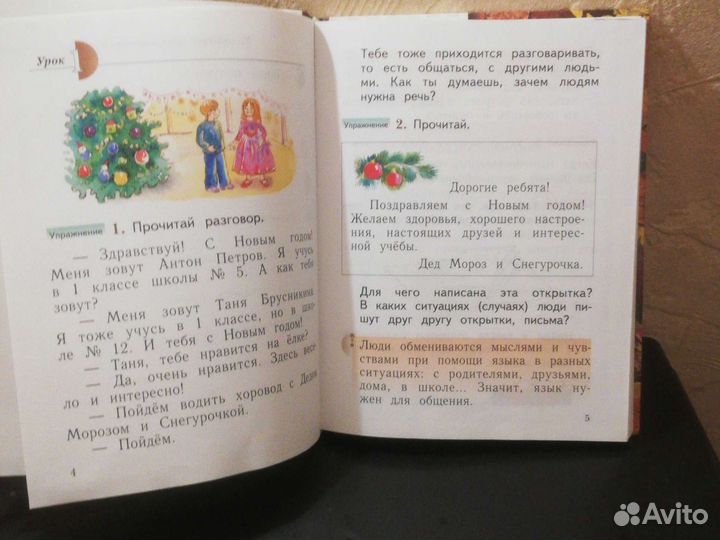 Урок 1
Упражнение 1. Прочитай разговор.
— Здравствуй! С Новым годом!
Меня зовут Антон Петров. Я учусь
в 1 классе школы № 5. А как тебя
зовут?
— Меня зовут Таня Брусникина.
Я тоже учусь в 1 классе, но в шко-
ле № 12. И тебя с Новым годом!
— Таня, тебе нравится на ёлке?
— Да, очень нравится. Здесь весе-
ло и интересно!
— Пойдём водить хоровод с Дедом
Морозом и Снегурочкой.
— Пойдём.
4
Тебе тоже приходится разговаривать,
то есть общаться, с другими людь-
ми. Как ты думаешь, зачем людям
нужна речь?
Упражнение 2. Прочитай.
Дорогие ребята!
Поздравляем с Новым годом!
Желаем здоровья, хорошего настрое-
ния, настоящих друзей и интерес-
ной учёбы.
Дед Мороз и Снегурочка.
Для чего написана эта открытка?
В каких ситуациях (случаях) люди пи-
шут друг другу открытки, письма?
! Люди обмениваются мыслями и чув-
ствами при помощи языка в разных
ситуациях: с родителями, друзьями,
дома, в школе... Значит, язык ну-
жен для общения.
5
Avito